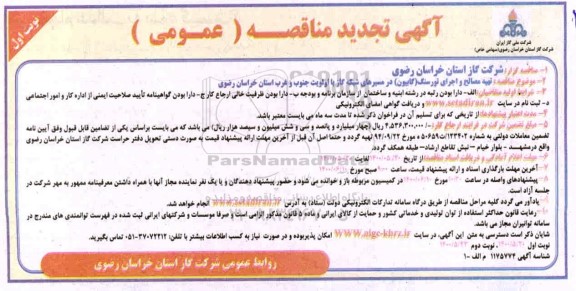 نوبت اول
آگهی تجدید مناقصه ( عمومی )
شرکت ملی گاز ایران
شرکت گاز استان خراسان رضوی(سهامی خاص)
۱- مناقصه گزار: شرکت گاز استان خراسان رضوی
۲- موضوع مناقصه: تهیه مصالح و اجرای تورسنگ(گابیون) در مسیرهای شبکه گاز با اولویت جنوب و غرب استان خراسان رضوی
۳- شرایط اولیه متقاضیان: الف- دارا بودن رتبه در رشته ابنیه و ساختمان از سازمان برنامه و بودجه ب- دارا بودن ظرفیت خالی ارجاع کار ج- دارا بودن گواهینامه تأیید صلاحیت ایمنی از اداره کار و امور اجتماعی
د- ثبت نام در سایت www.setadiran.ir و دریافت گواهی امضای الکترونیکی
۴- مدت اعتبار پیشنهادها از تاریخی که برای تسلیم آن در فراخوان ذکر شده تا مدت سه ماه می بایست معتبر باشد.
۵- مبلغ تضمین شرکت در فرایند ارجاع کار: ۴,۵۳۶,۳۰۰,۰۰۰ ریال (چهار میلیارد و پانصد و سی و شش میلیون و سیصد هزار ریال) می باشد که می بایست براساس یکی از تضامین قابل قبول وفق آیین نامه
تضمین معاملات دولتی به شماره ۱۲۳۴۰۲/ت۵۰۶۵۹ ه مورخ ۹۴/۰۹/۲۲ تهیه گردد و حتما اصل آن قبل از آخرین مهلت ارائه پیشنهاد قیمت به صورت دستی تحویل دفتر حراست شرکت گاز استان خراسان رضوی
واقع در مشهد - بلوار خیام - نبش تقاطع ارشاد- طبقه همکف گردد.
آخرین مهلت بارگذاری اسناد و ارائه پیشنهاد قیمت، ساعت صبح مورخ
پیشنهادهای واصله در ساعت مورخ در کمیسیون مربوطه باز و خوانده می شود و حضور پیشنهاد دهندگان و یا یک نفر نماینده مجاز آنها با همراه داشتن معرفینامه ممهور به مهر شرکت در
جلسه آزاد است.
یادآور می گردد کلیه مراحل مناقصه از طریق درگاه سامانه تدارکات الکترونیکی دولت (ستاد) به آدرس www.setadiran.ir انجام خواهد شد.
رعایت قانون حداکثر استفاده از توان تولیدی و خدماتی کشور و حمایت از کالای ایرانی و ماده قانون مذکور الزامی است و صرفا موسسات و شرکتهای ایرانی ثبت شده در فهرست توانمندی های مندرج در
سامانه توانیران مجاز می باشد.
شایان ذکر است دسترسی به متن این آگهی، در سایت www.nigc-khrz.ir امکان پذیر بوده و در صورت نیاز به کسب اطلاعات بیشتر با تلفن: ۳۷۰۷۲۲۱۲-۰۵۱ تماس بگیرید.
نوبت اول نوبت دوم
شناسه آگهی ۱۱۷۵۷۷۴ م الف ۱۰
روابط عمومی شرکت گاز استان خراسان رضوی
ParsNamadData